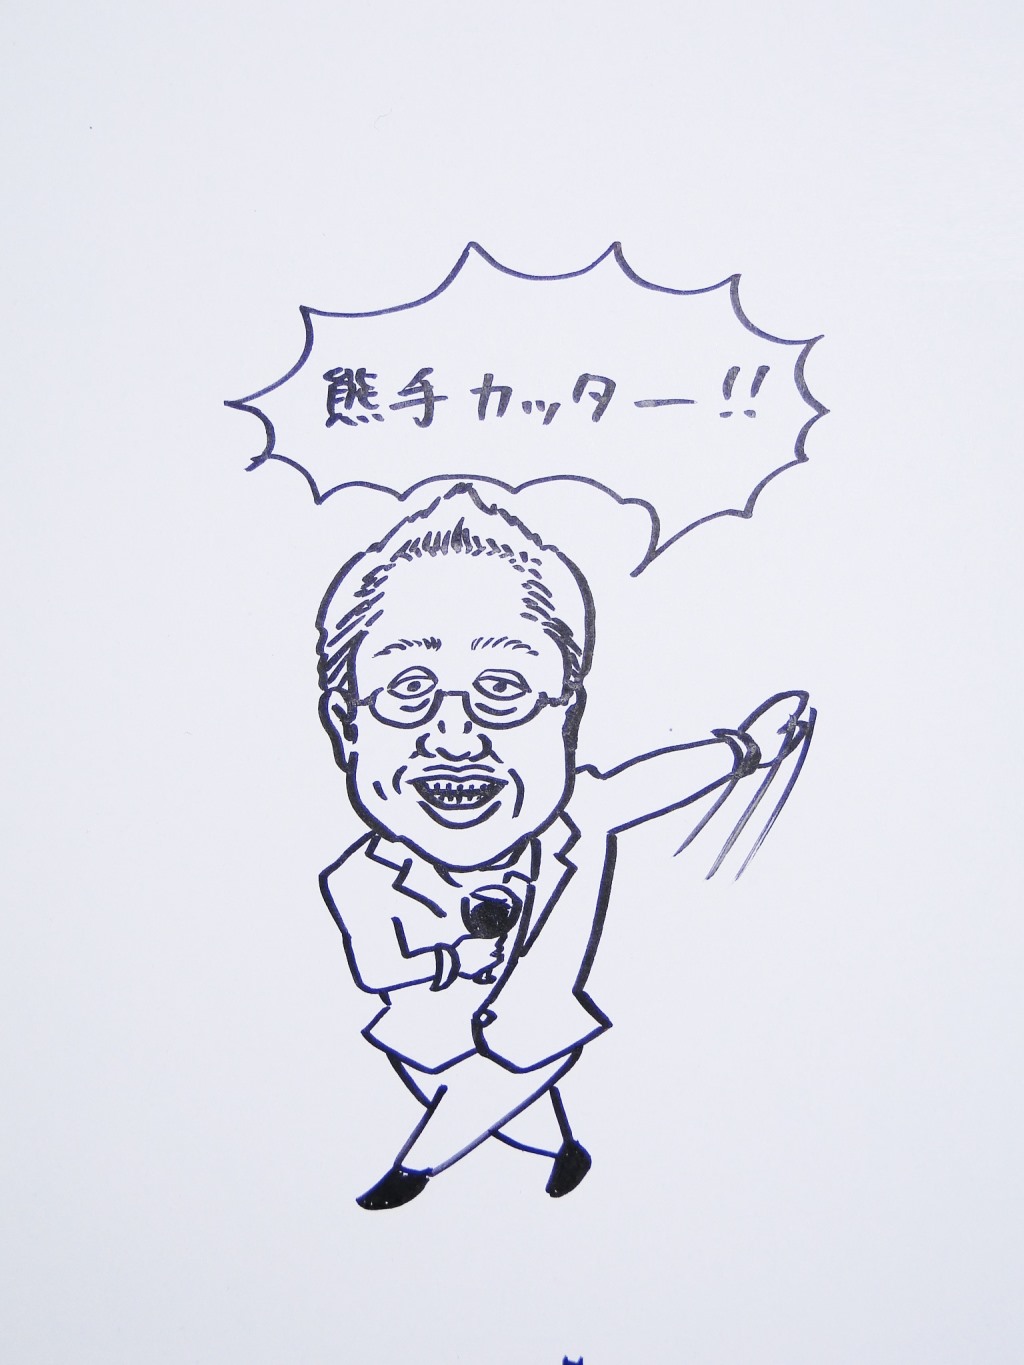 熊手カッター!!